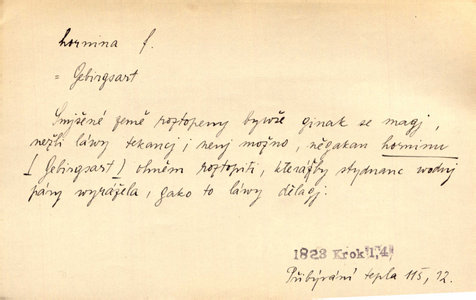 hornina f.
= Gebirgsart
Smjšené země roztopeny bywše ginak se magj,
nežli láwy tekancj i nenj možno, něgakau horninu
[Gebirgsart] ohněm roztopiti, kterážby stydnauc wodnj
páry wyrážela, gako to láwy dělagj.
1823 Krok 1,4,
Přibýwání tepla 115, 12.